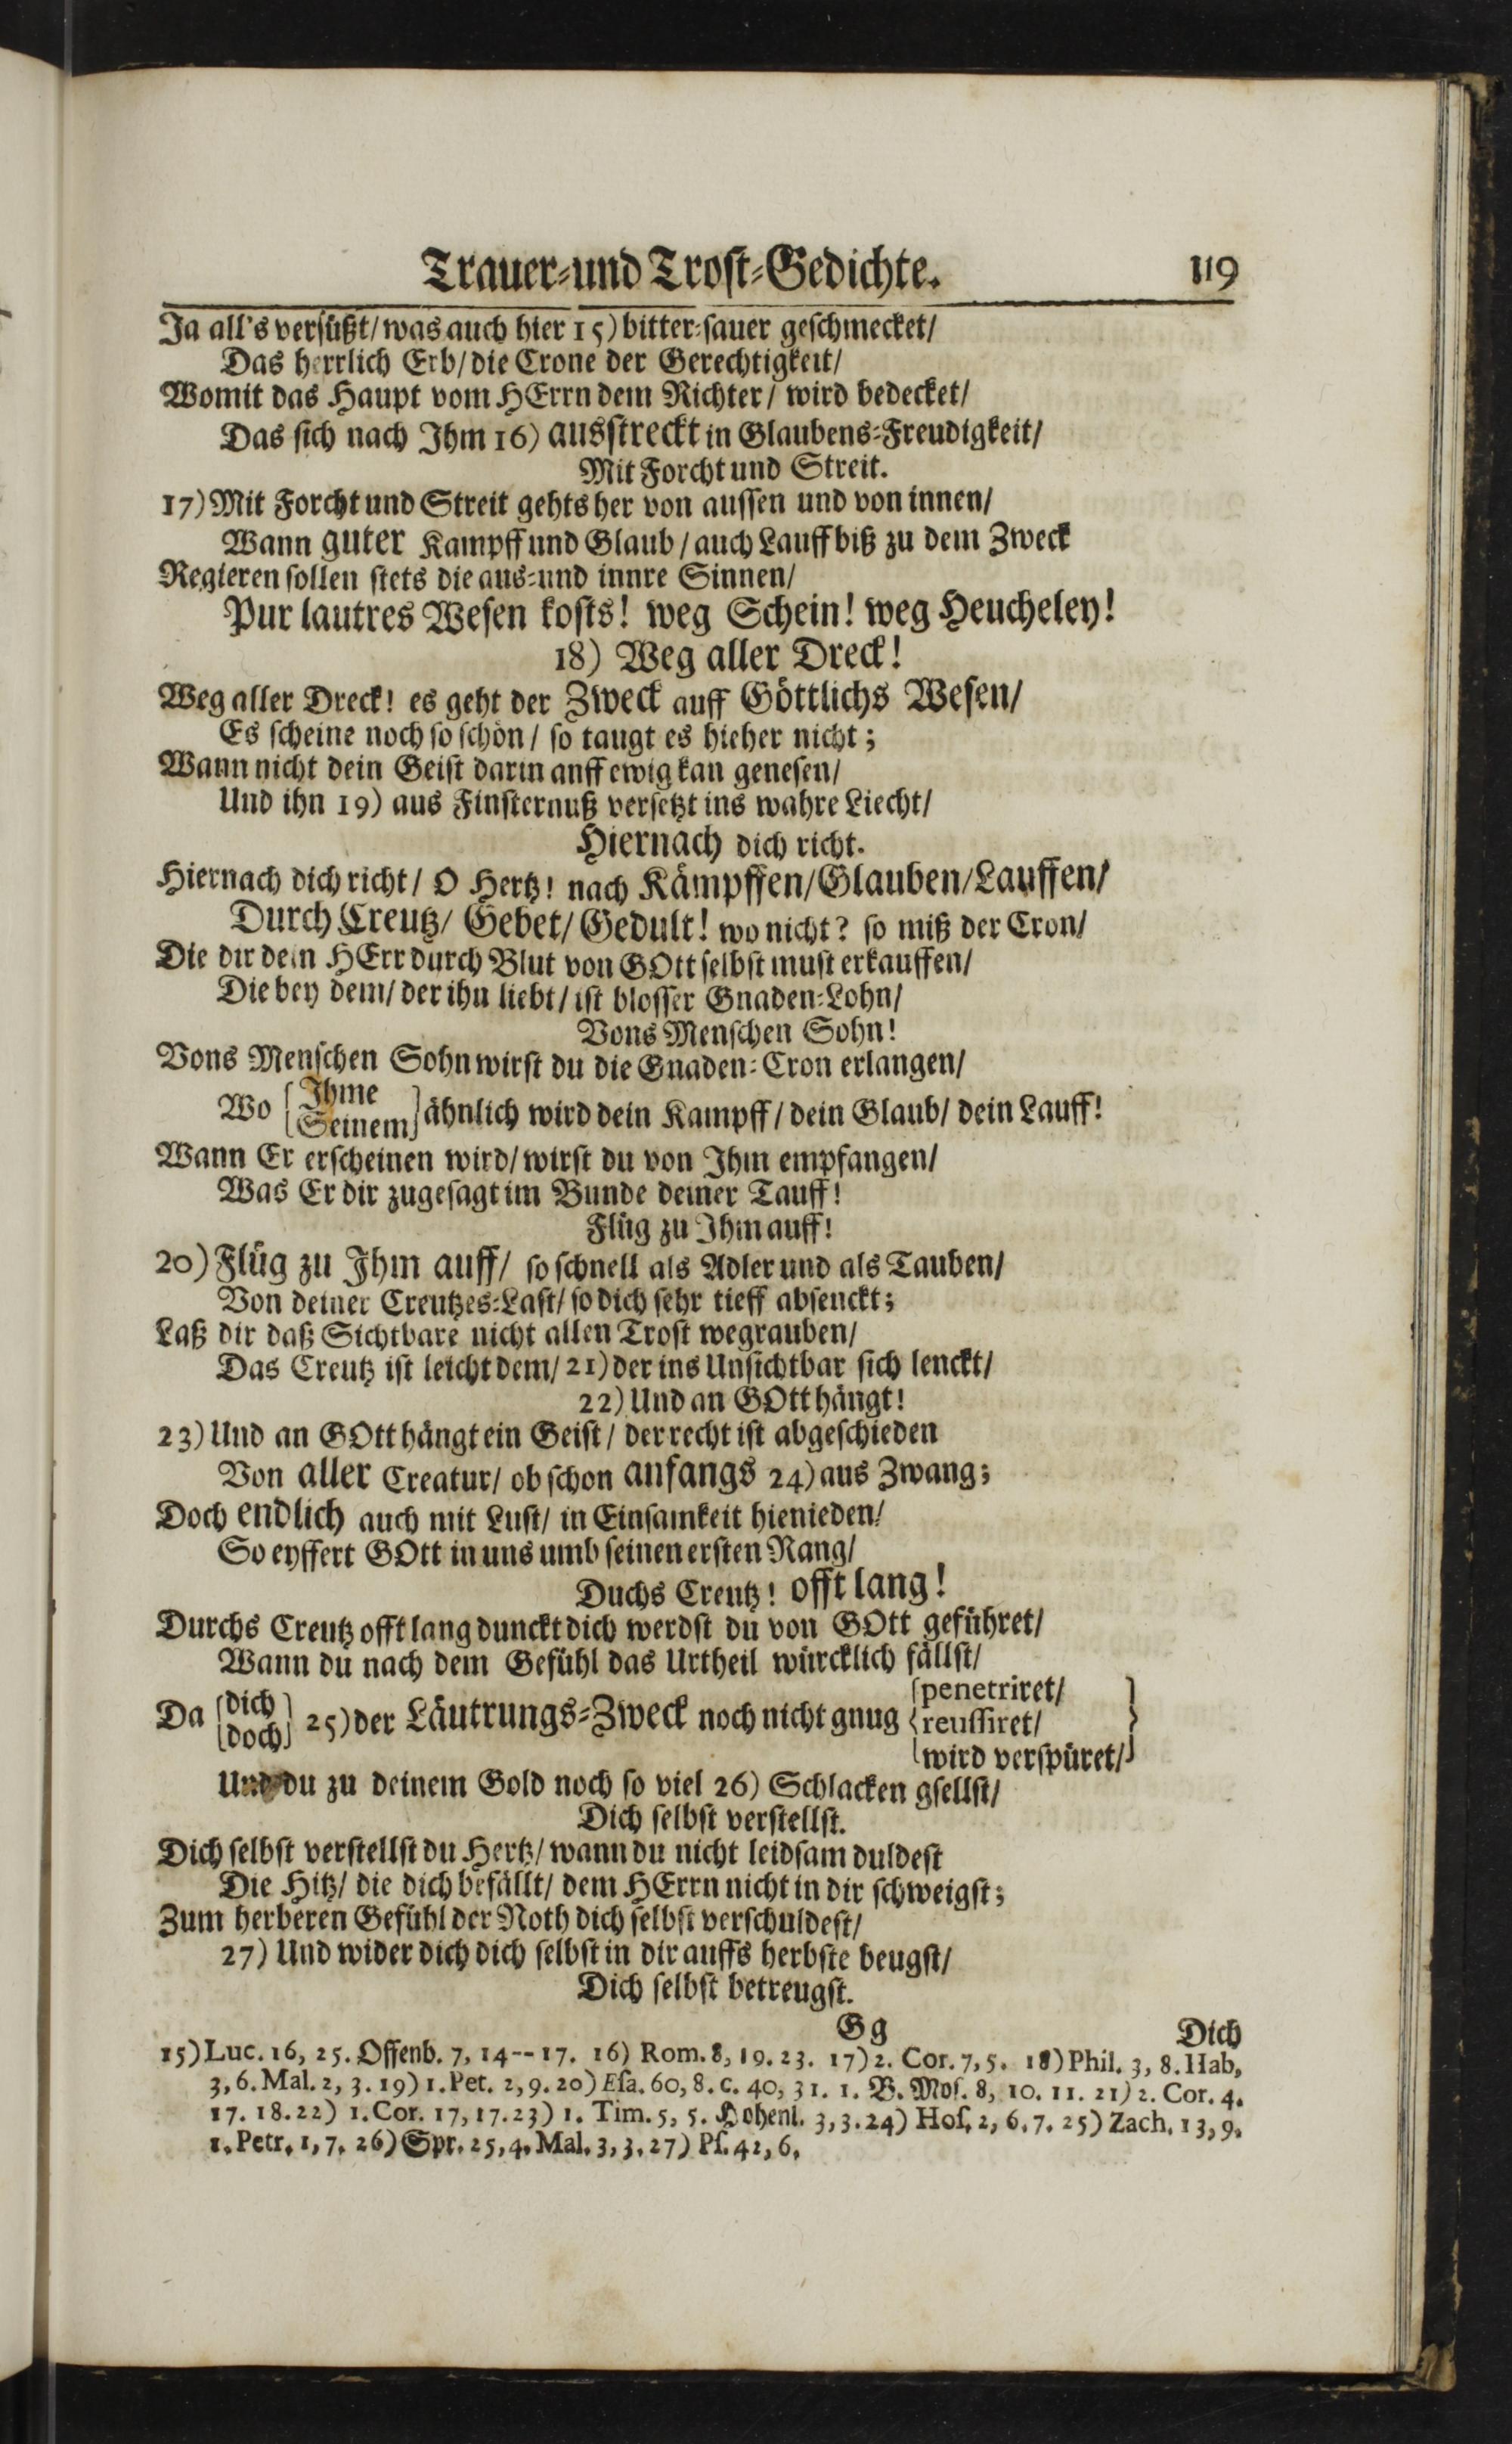 Trauer-und Trost-Gedichte. 119
Ja all's versüßt/was auch hier 15) bitter-sauer geschmecket/
Das herrlich Erb/die Crone der Gerechtigkeit/
Womit das Haupt vom HErrn dem Richter/ wird bedecket/
Das sich nach Ihm 16) ausstreckt in Glaubens-Freudigkeit/
Mit Forcht und Streit.
17) Mit Forcht und Streit gehts her von aussen und von innen/
Wann guter Kampff und Glaub/auch Lauff biß zu dem Zweck
Regieren sollen stets die aus-und innre Sinnen/
Pur lautres Wesen kosts! weg Schein! weg Heucheley!
18) Weg aller Dreck!
Weg aller Dreck! es geht der Zweck auff Göttlichs Wesen/
Es scheine noch so schön/ so taugt es hieher nicht;
Wann nicht dein Geist darin anff ewig kan genesen/
Und ihn 19) aus Finsternuß versetzt ins wahre Liecht/
Hiernach dich richt.
Hiernach dich richt/ O Hertz! nach Kämpffen/Glauben/Lauffen/
Durch Creutz/ Gebet/ Gedult! wo nicht? so miß der Cron/
Die dir dein HErr durch Blut von GOtt selbst must erkauffen/
Die bey dem/ der ihn liebt/ ist blosser Gnaden-Lohn/
Vons Menschen Sohn!
Vons Menschen Sohn wirst du die Gnaden-Cron erlangen/
Wo [Ihme
Seinem] ähnlich wird dein Kampff/ dein Glaub/ dein Lauff!
Wann Er erscheinen wird/ wirst du von Ihm empfangen/
Was Er dir zugesagt im Bunde deiner Tauff!
Flüg zu Ihm auff!
20) Flüg zu Ihm auff/ so schnell als Adler und als Tauben/
Von deiner Creutzes-Last/ so dich sehr tieff absenckt;
Laß dir daß Sichtbare nicht allen Trost wegrauben/
Das Creutz ist leicht dem/ 21) der ins Unsichtbar sich lenckt/
22) Und an GOtt hängt!
23) Und an GOtt hängt ein Geist/ der recht ist abgeschieden
Von aller Creatur/ ob schon anfangs 24) aus Zwang;
Doch endlich auch mit Lust/ in Einsamkeit hienieden/
So eyffert GOtt in uns umb seinen ersten Rang/
Duchs Creutz! offt lang!
Durchs Creutz offt lang dunckt dich werdst du von GOtt geführet/
Wann du nach dem Gefühl das Urtheil würcklich fällst/
Da [dich
doch] 25) der Läutrungs-Zweck noch nicht gnug {penetriret/
reussiret/
wird verspüret/}
Und du zu deinem Gold noch so viel 26) Schlacken gsellst/
Dich selbst verstellst.
Dich selbst verstellst du Hertz/ wann du nicht leidsam duldest
Die Hitz/ die dich befällt/ dem HErrn nicht in dir schweigst;
Zum herberen Gefühl der Noth dich selbst verschuldest/
27) Und wider dich dich selbst in dir auffs herbste beugst/
Dich selbst betreugst.
Gg Dich
15) Luc. 16, 25. Offenb. 7, 14--17. 16) Rom. 8, 19. 23. 17) 2. Cor. 7, 5. 18) Phil. 3, 8. Hab,
3, 6. Mal. 2, 3. 19) 1. Pet. 2, 9. 20) Esa. 60, 8. c. 40, 31. 1. B. Mos. 8, 10. 11. 21) 2. Cor. 4.
17. 18. 22) 1. Cor. 17, 17. 23) 1. Tim. 5, 5. Hohenl. 3, 3. 24) Hos. 2, 6. 7. 25) Zach. 13, 9.
1. Petr. 1, 7. 26) Spr. 25, 4. Mal. 3, 3. 27) Ps. 42, 6.